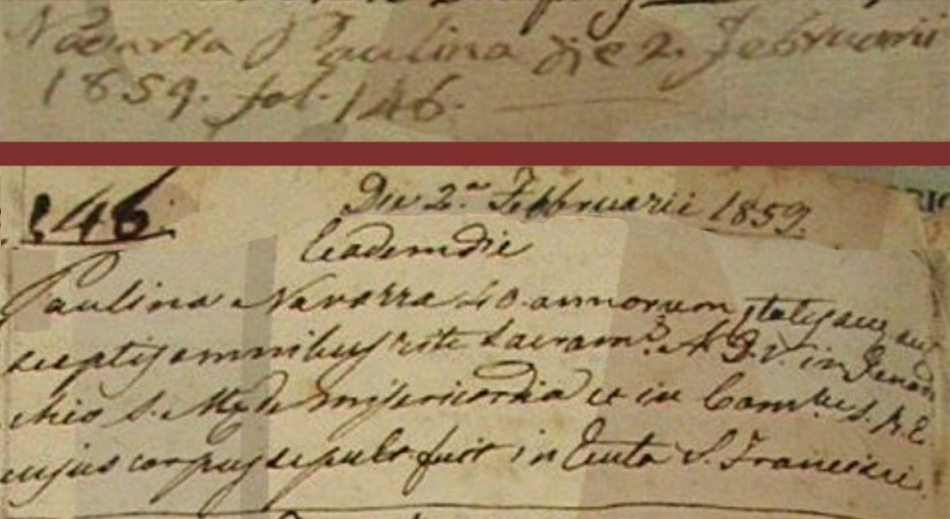 Navarra Paulina die 2. Februarii
1859. fol. 146.
146.
Die 2.a Februarii 1859.
Eadem die
Paulina Navarra 40. annorum ętatis suę sus
ceptis omnibus rite Sacram.s A. D. V. in
chio S. Mę de Misericordia et in Com. S. R. E.
cujus corpus sepult. fuit in Ecc.ta S. Francisci.